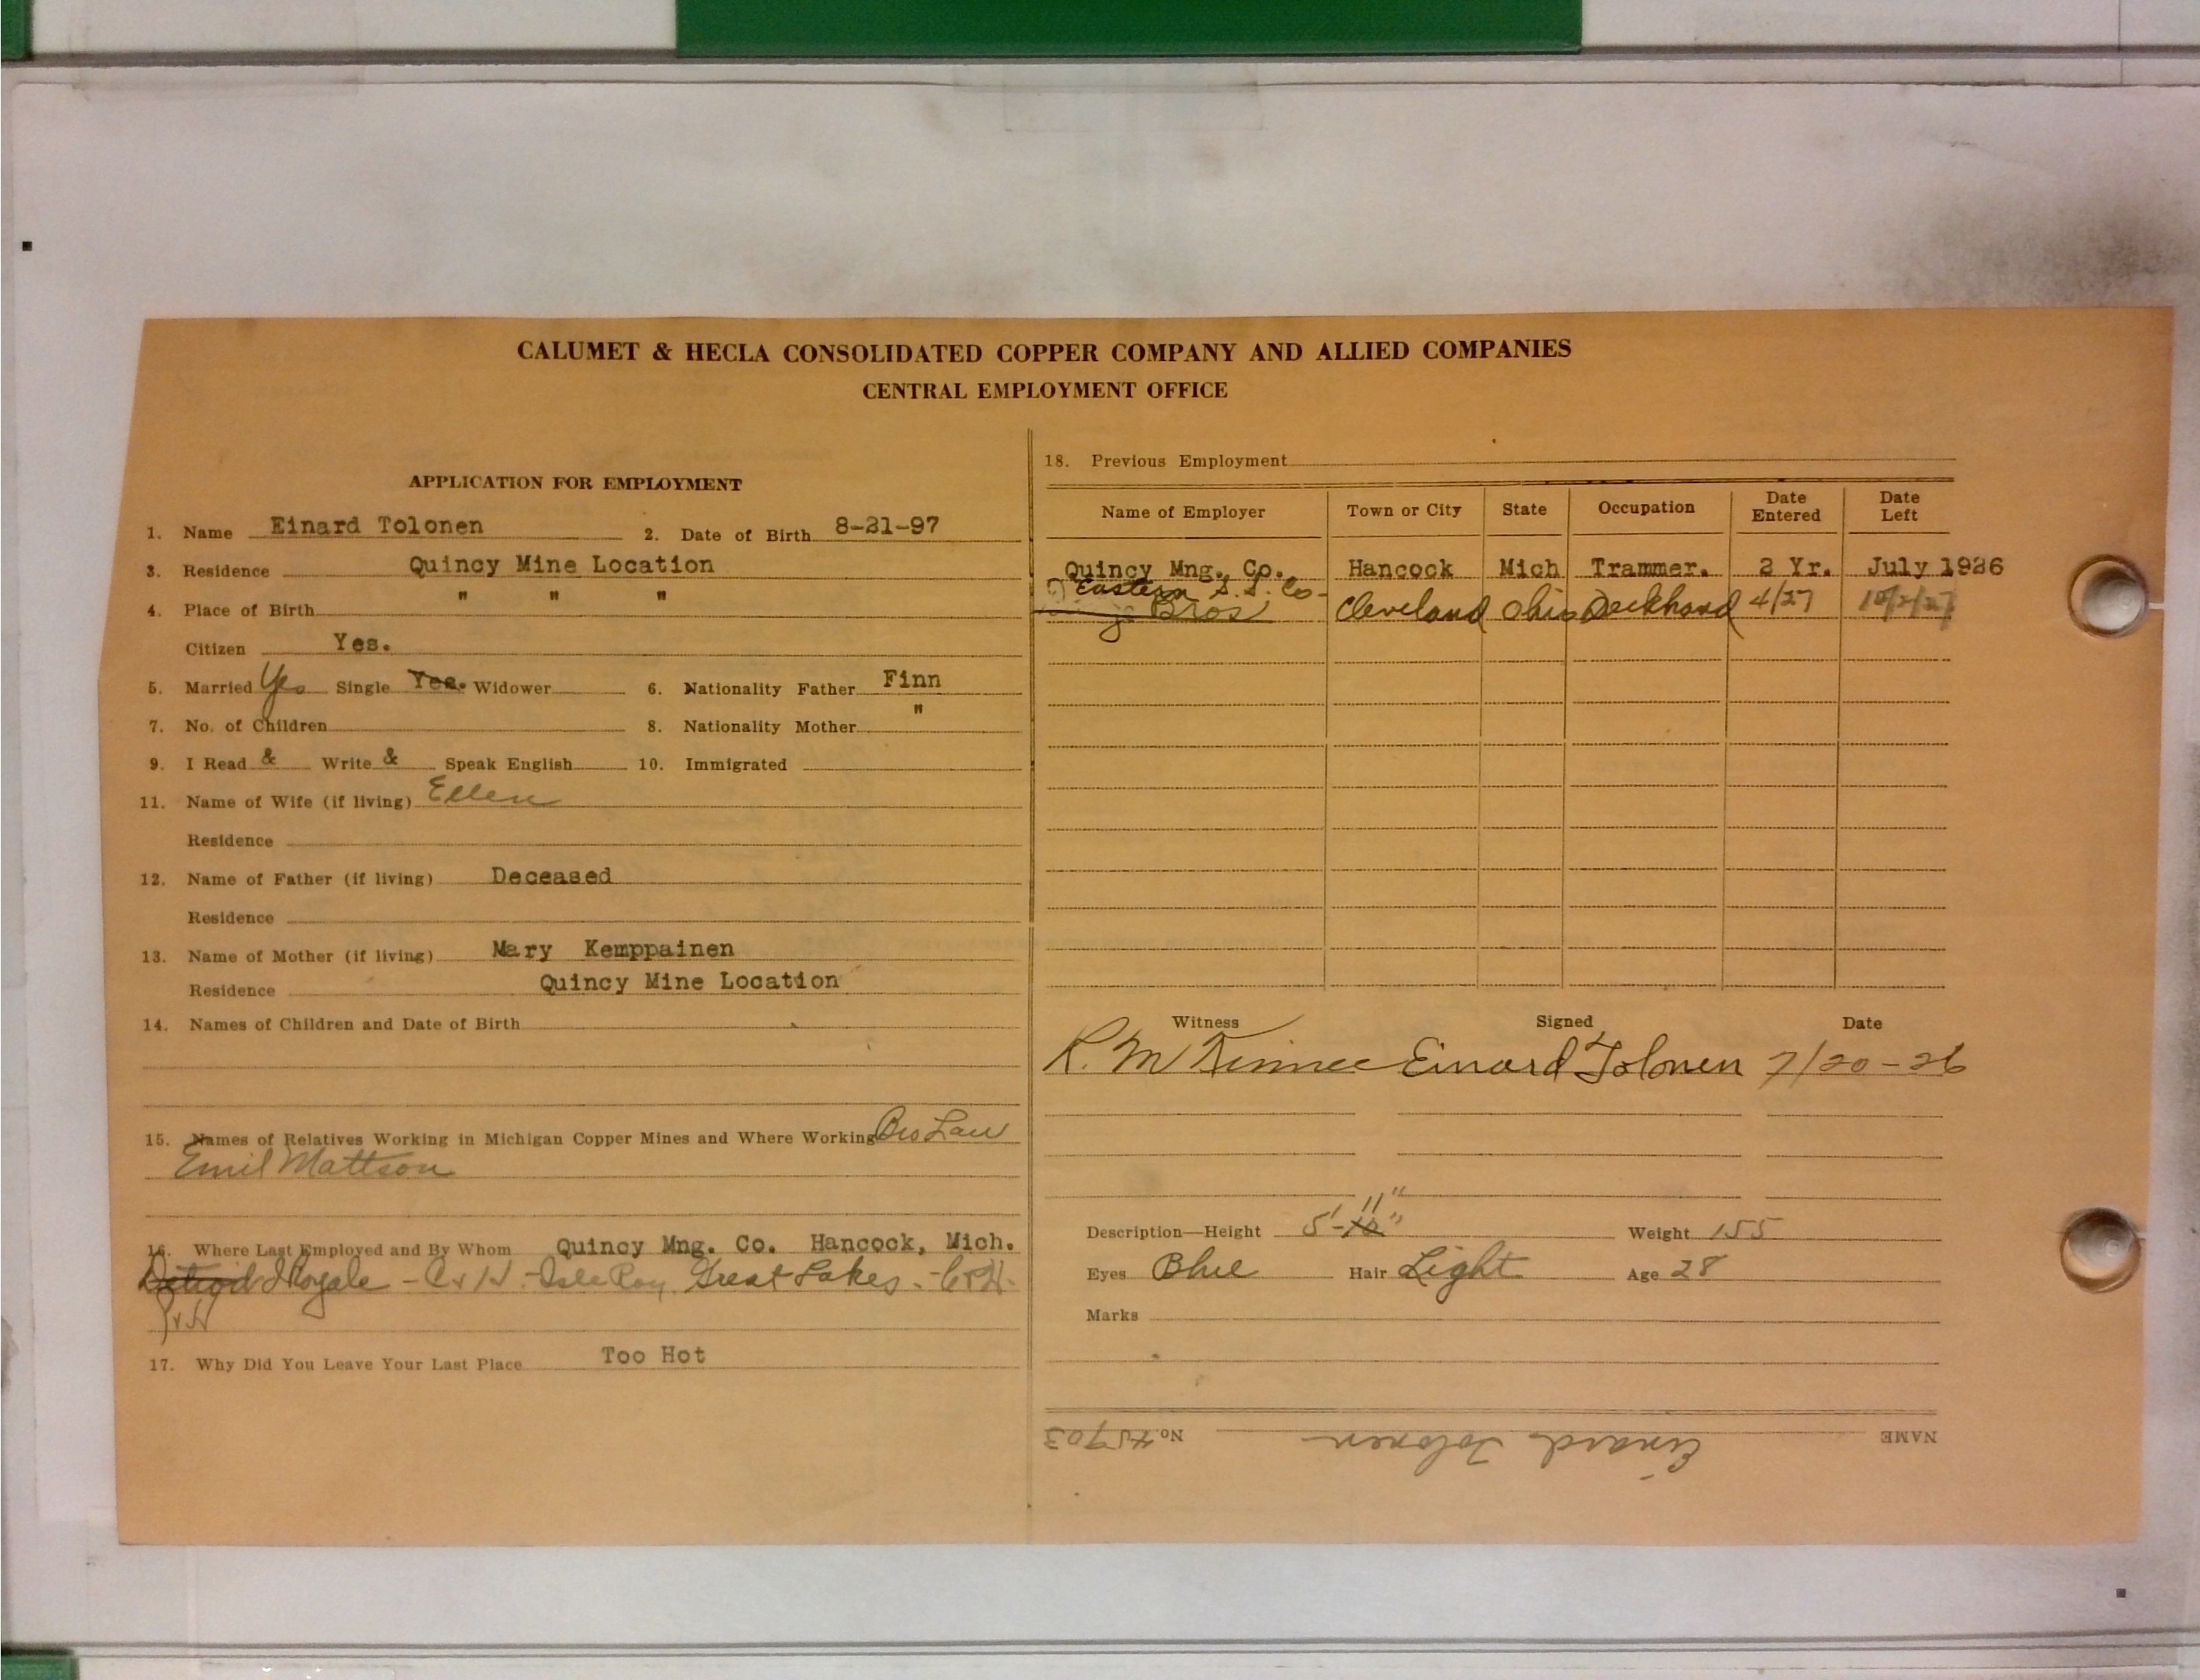 CALUMET & HECLA CONSOLIDATED COPPER COMPANY AND ALLIED COMPANIES
CENTRAL EMPLOYMENT OFFICE
APPLICATION FOR EMPLOYMENT
1. Name Einard Tolonen 2. Date of Birth 8-21-97
3. Residence Quincy Mine Location
4. Place of Birth " " "
Citizen Yes.
5. Married Yes Single Yes. Widower 6. Nationality Father Finn
7. No. of Children 8. Nationality Mother "
9. I Read & Write & Speak English 10. Immigrated
11. Name of Wife (if living) Ellen
Residence
12. Name of Father (if living) Deceased
Residence
13. Name of Mother (if living) Mary Kemppainen
Residence Quincy Mine Location
14. Names of Children and Date of Birth
15. Names of Relatives Working in Michigan Copper Mines and Where Working Bro Law
Emil Mattson
16. Where Last Employed and By Whom Quincy Mng. Co. Hancock, Mich.
Detroit I Royale - C & H - Isle Roy. Great Lakes - C & H.
17. Why Did You Leave Your Last Place Too Hot
18. Previous Employment
Name of Employer Town or City State Occupation Date Entered Date Left
Quincy Mng. Co. Hancock Mich Trammer. 2 Yr. July 1926
Eastern S. S. Co-
Bros Cleveland Ohio Deckhand 4/27
Witness Signed Date
R. McKinnee Einard Tolonen 7/20-26
Description—Height 5'-10" 11" Weight 155
Eyes Blue Hair Light Age 28
Marks
NAME Einard Tolonen No. 45703